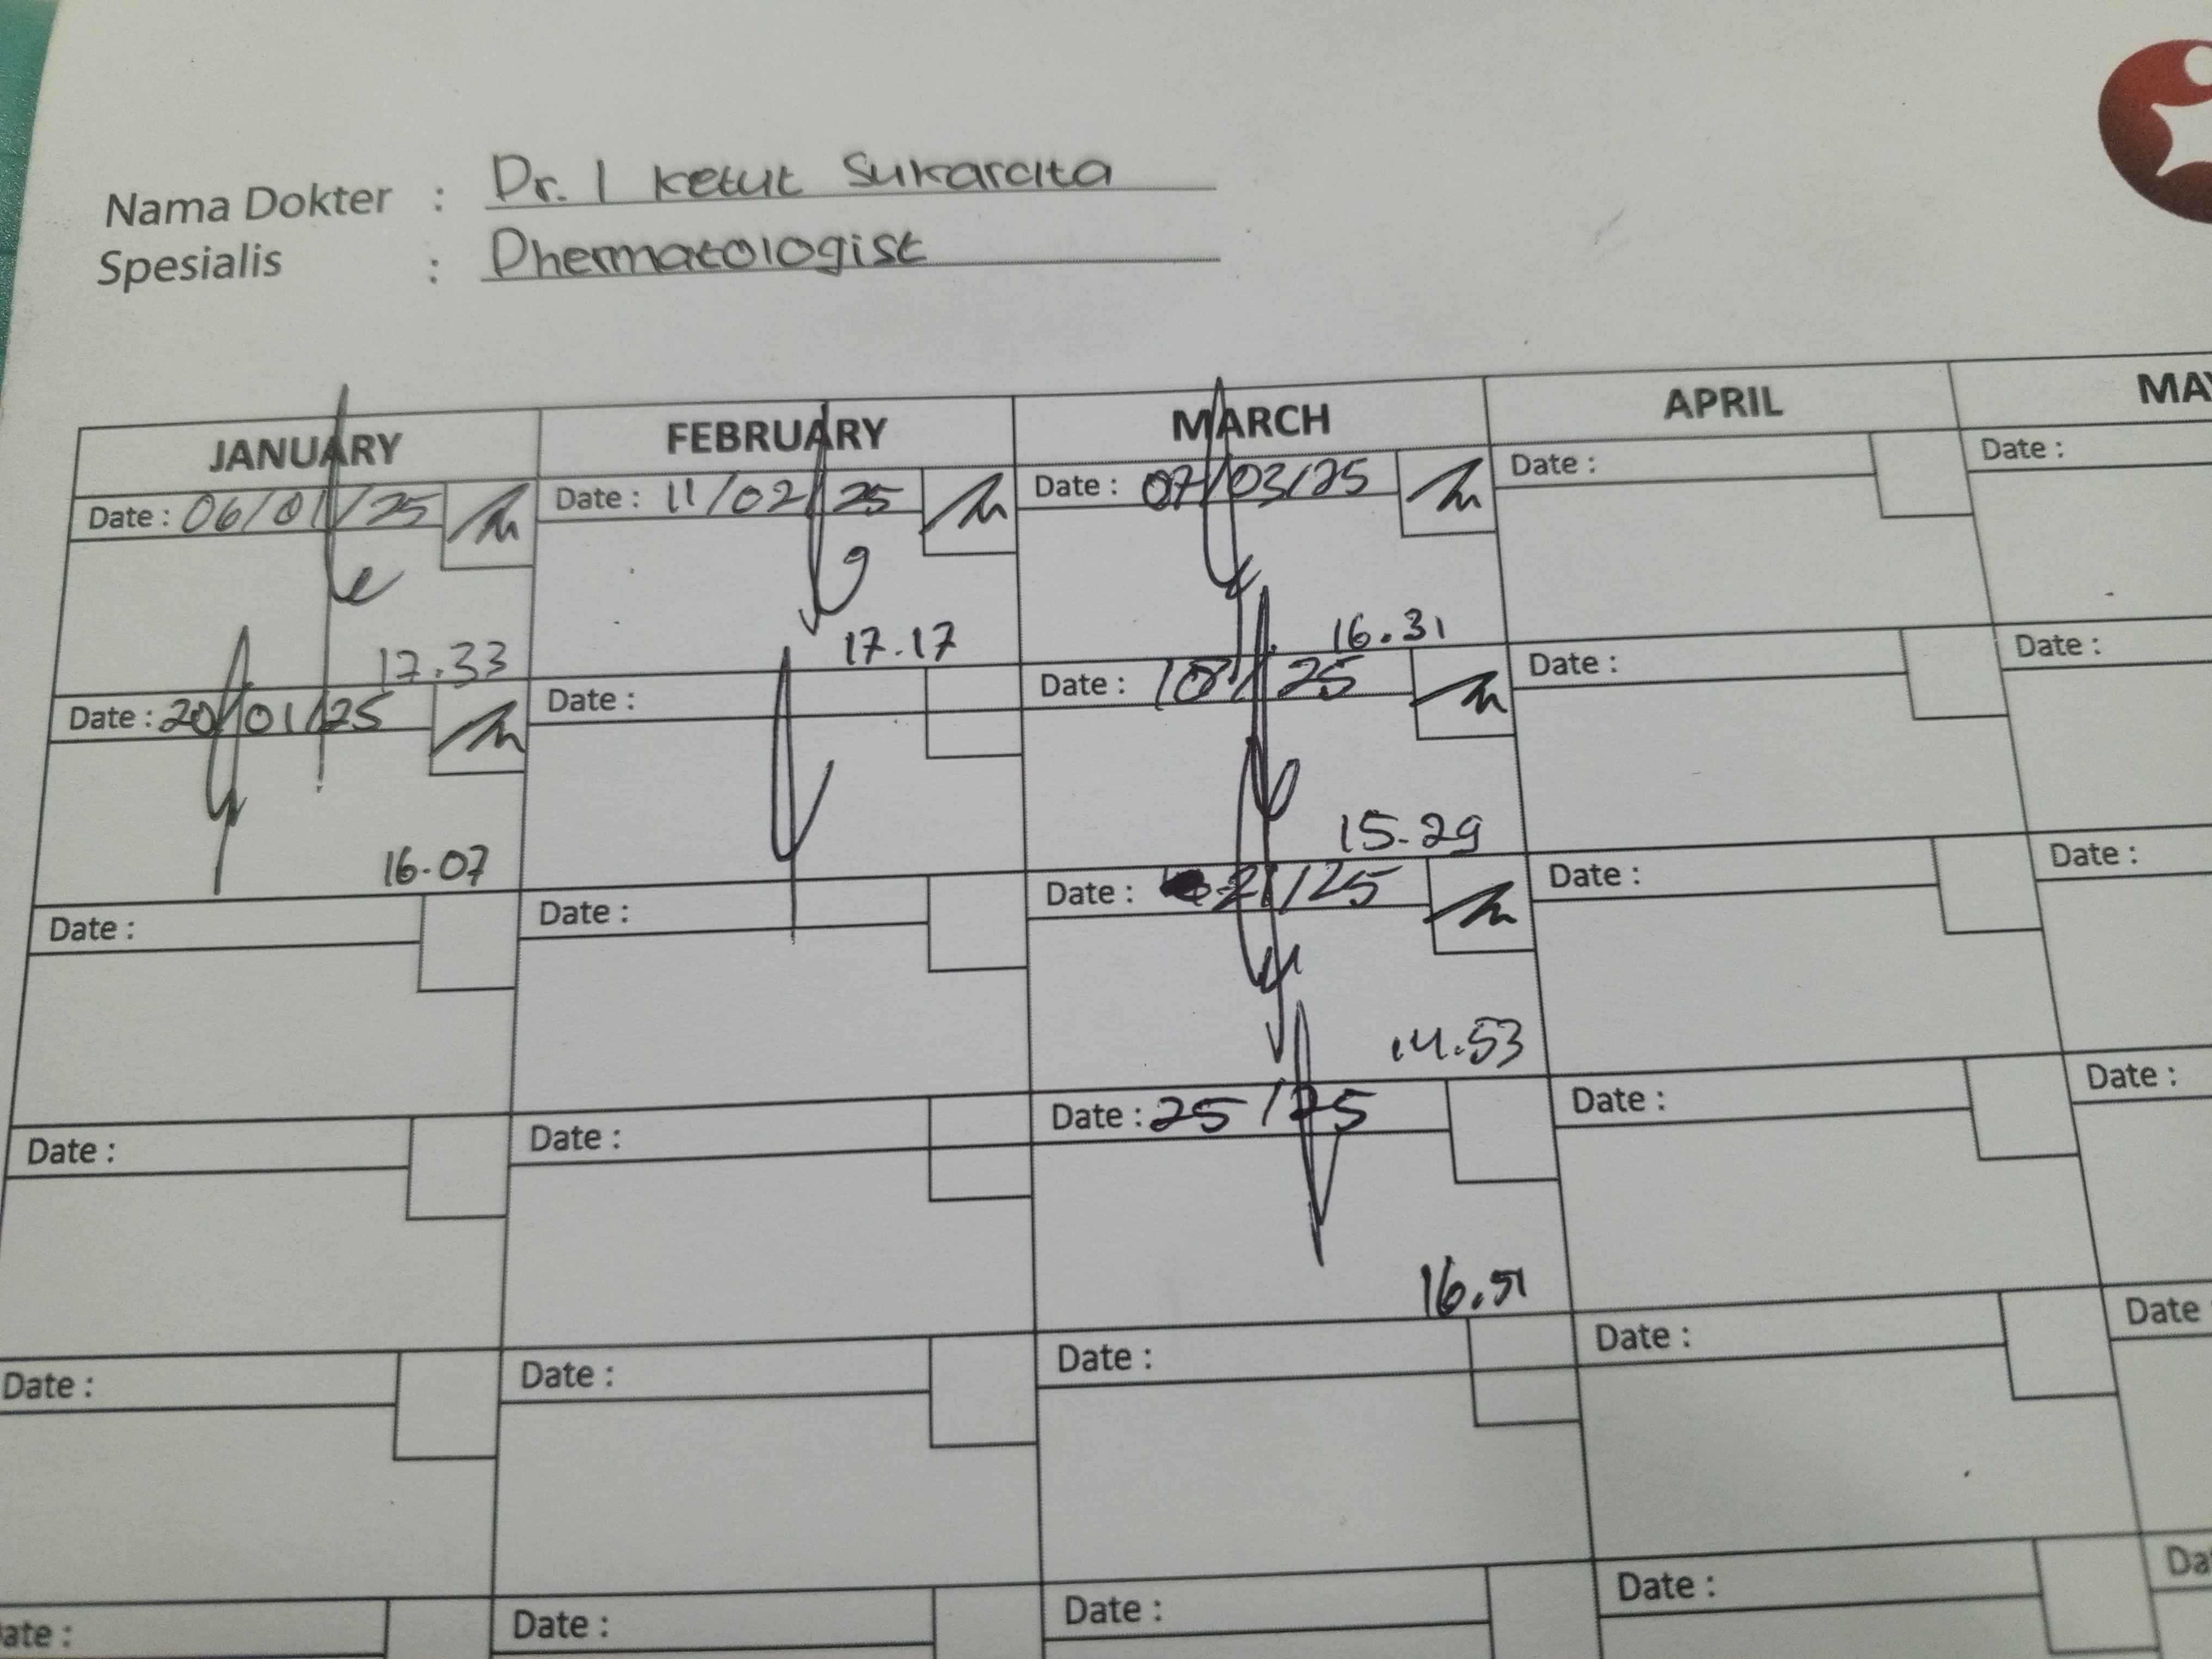 Nama Dokter : Dr. I Ketut Sukarcita
Spesialis : Dhermatologist
JANUARY FEBRUARY MARCH APRIL
Date : 06/01/25 Date : 11/02/25 Date : 07/03/25 Date : Date :
17.33 17.17 16.31
Date : 20/01/25 Date : Date : 10/ 25 Date : Date :
16.07 15.29
Date : Date : Date : 21/25 Date : Date :
14.53
Date : Date : Date : 25/25 Date : Date :
16.51
Date : Date : Date : Date : Date
Date : Date : Date :